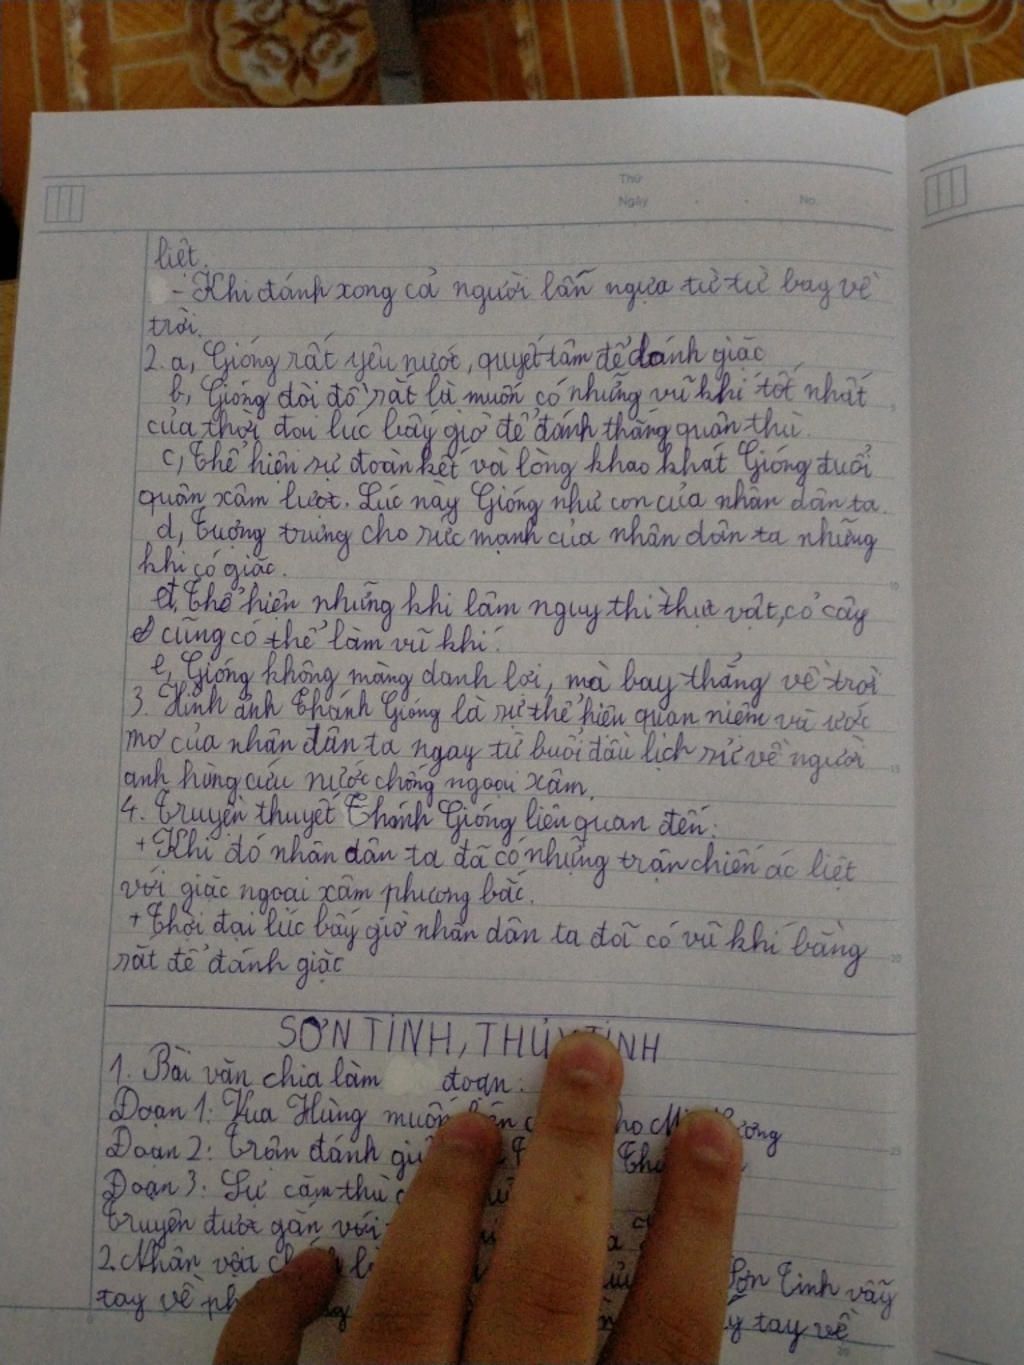 Thứ
Ngày . . No.
liệt.
- Khi đánh xong cả người lẫn ngựa từ từ bay về
trời.
2. a, Gióng rất yêu nước, quyết tâm để đánh giặc
b, Gióng đòi đồ sắt là muốn có những vũ khí tốt nhất
của thời đại lúc bấy giờ để đánh thắng quân thù.
c, Thể hiện sự đoàn kết và lòng khao khát Gióng đuổi
quân xâm lược. Lúc này Gióng như con của nhân dân ta.
d, Tượng trưng cho sức mạnh của nhân dân ta những
khi có giặc.
đ, Thể hiện những khi lâm nguy thì thực vật, cỏ cây
cũng có thể làm vũ khí.
e, Gióng không màng danh lợi, mà bay thẳng về trời
3. Hình ảnh Thánh Gióng là sự thể hiện quan niệm và ước
mơ của nhân dân ta ngay từ buổi đầu lịch sử về người
anh hùng cứu nước chống ngoại xâm.
4. Truyền thuyết Thánh Gióng liên quan đến:
+ Khi đó nhân dân ta đã có những trận chiến ác liệt
với giặc ngoại xâm phương bắc.
+ Thời đại lúc bấy giờ nhân dân ta đã có vũ khí bằng
sắt để đánh giặc
SƠN TINH, THỦY TINH
1. Bài văn chia làm đoạn:
Đoạn 1: Vua Hùng muốn cho
Đoạn 2: Trận đánh
Đoạn 3: Sự căm thù
Truyện được gắn với
2. Nhân vật Sơn Tinh vẫy
tay về tay về